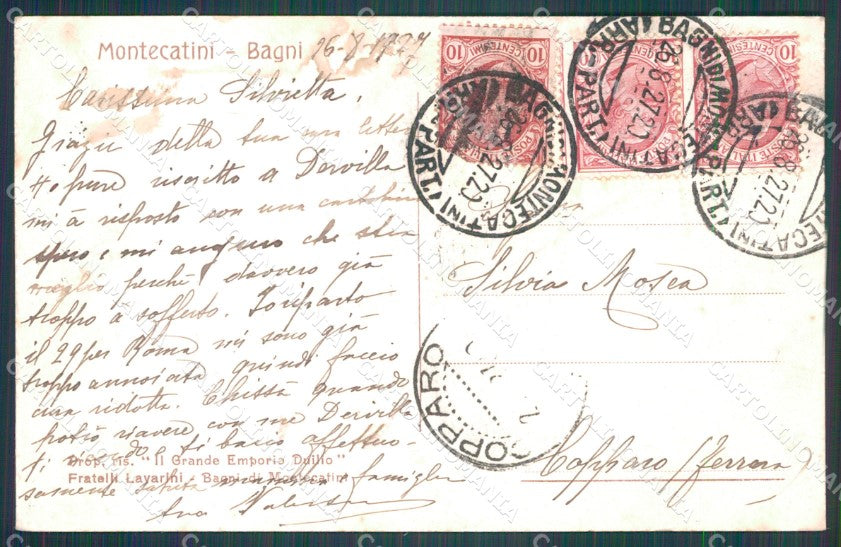 Montecatini - Bagni 26-8-1927
Carissima Silvietta.
Grazie della tua cara lettera
Ho pure scritto a Dervilla
mi à risposto con una cartolina
spero e mi auguro che stia
meglio perchè davvero già
troppo à sofferto. Io riparto
il 29 per Roma mi sono già
troppo annoiata quindi faccio
cura ridotta. Chissà quando
potrò riavere con me Dervilla
ti bacio affettuo-
samente saluta famiglia
tua
Prop. ris. "Il Grande Emporio Duilio"
Fratelli Lavarini - Bagni di Montecatini
10 CENTESIMI 10
10 CENTESIMI 10
10 CENTESIMI 10
BAGNI DI MONTECATINI
(ARR.-PART.)
26.8.27.20
BAGNI DI MONTECATINI
(ARR.-PART.)
26.8.27.20
BAGNI DI MONTECATINI
(ARR.-PART.)
26.8.27.20
Silvia Mosca
COPPARO
Copparo (Ferrara)
CARTOLINOMANIA